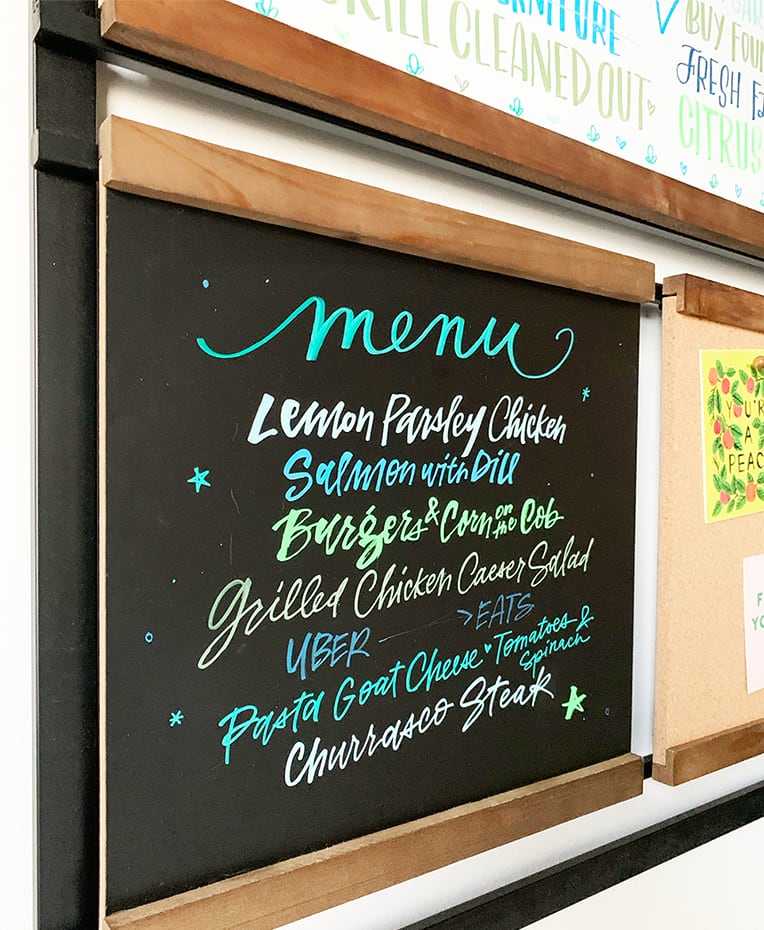 FURNITURE
GRILL CLEANED OUT
BUY
FRESH
CITRUS
menu
Lemon Parsley Chicken
Salmon with Dill
Burgers & Corn on the Cob
Grilled Chicken Caeser Salad
UBER → EATS
Pasta Goat Cheese Tomatoes & Spinach
Churrasco Steak
YOU'RE
A
PEACH